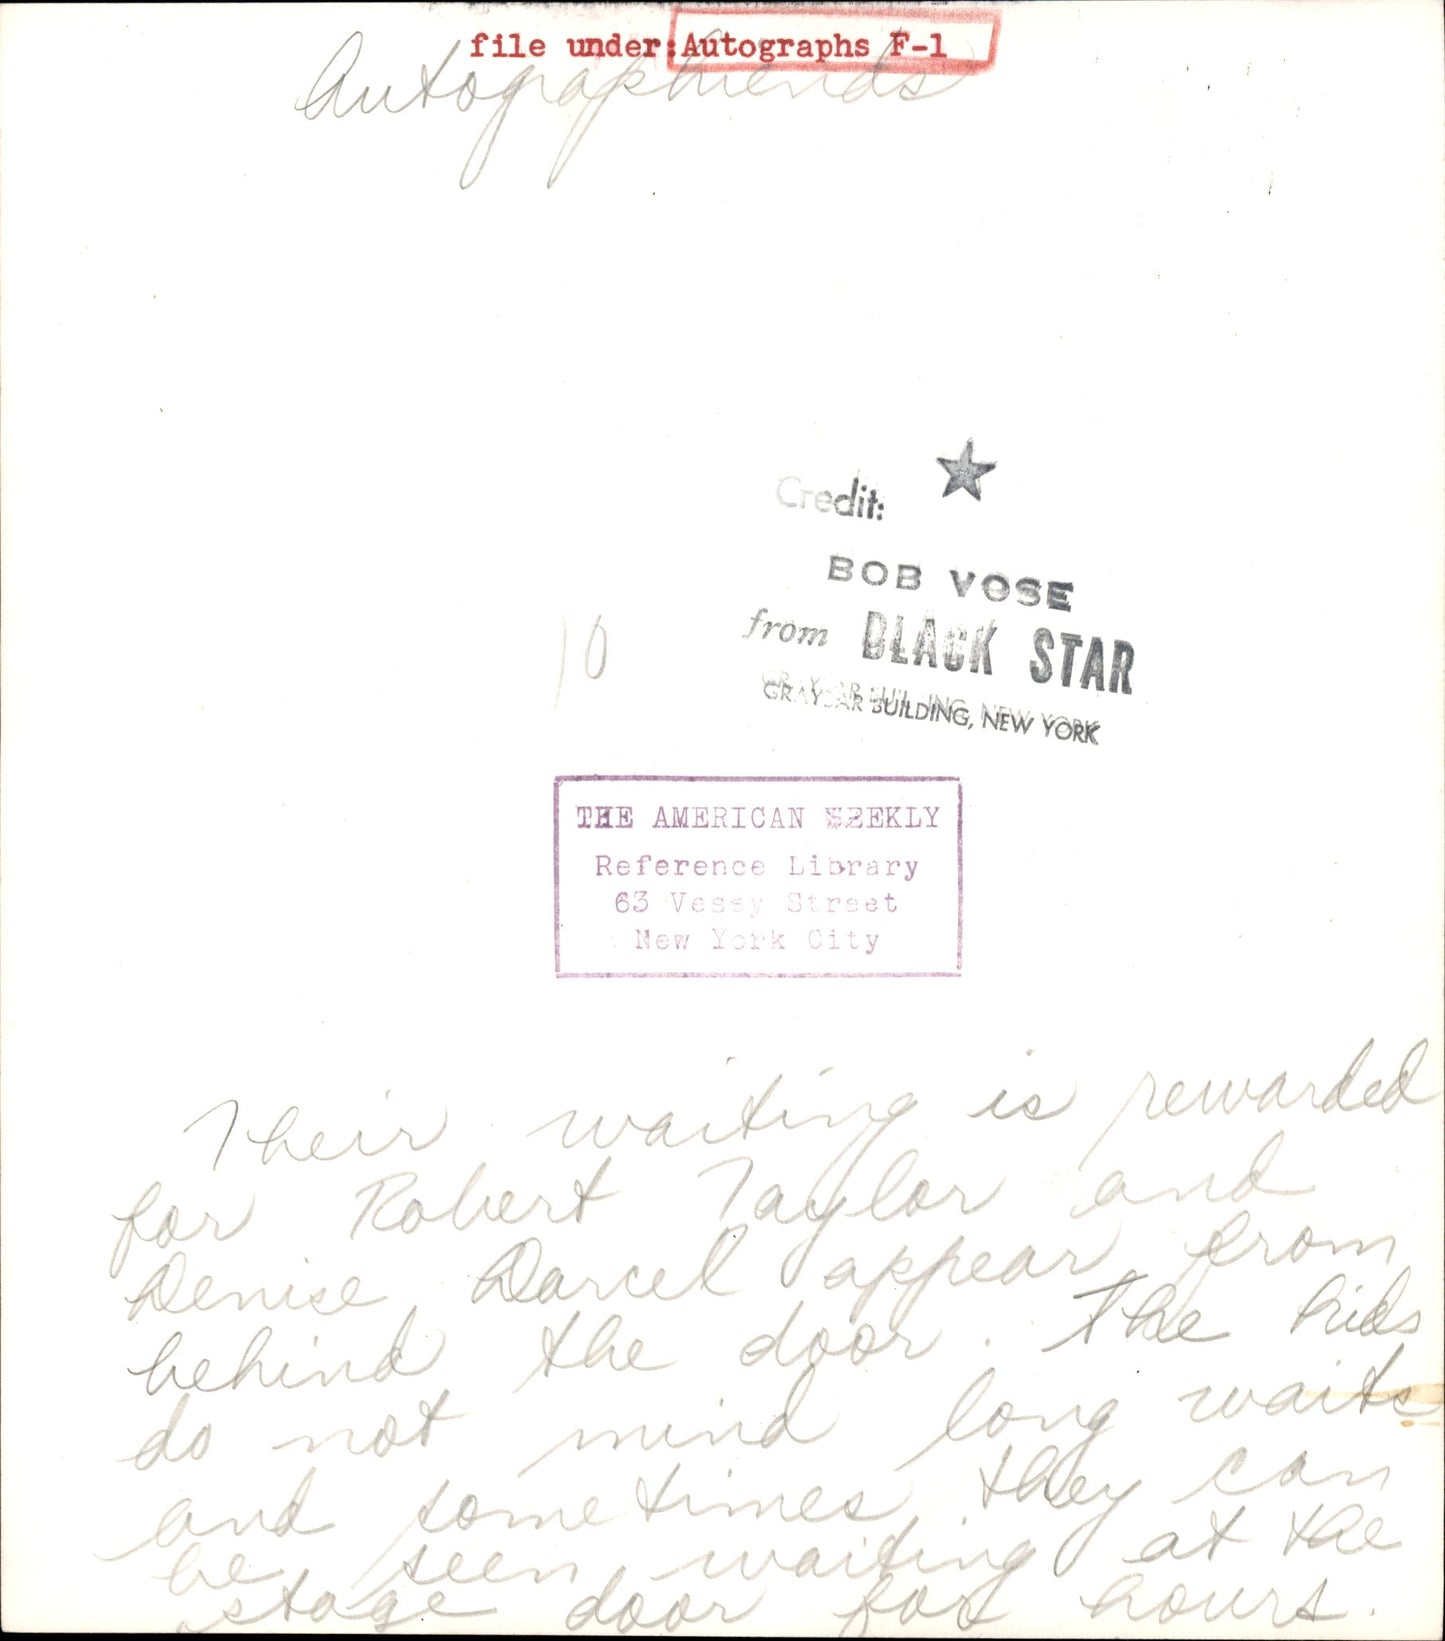 file under: Autographs F-1
Autographiends
Credit:
BOB VOSE
from BLACK STAR
GRAYBAR BUILDING, NEW YORK
10
THE AMERICAN WEEKLY
Reference Library
63 Vesey Street
New York City
Their waiting is rewarded
for Robert Taylor and
Denise Darcel appear from
behind the door. The kids
do not mind long waits
and sometimes they can
be seen waiting at the
stage door for hours.